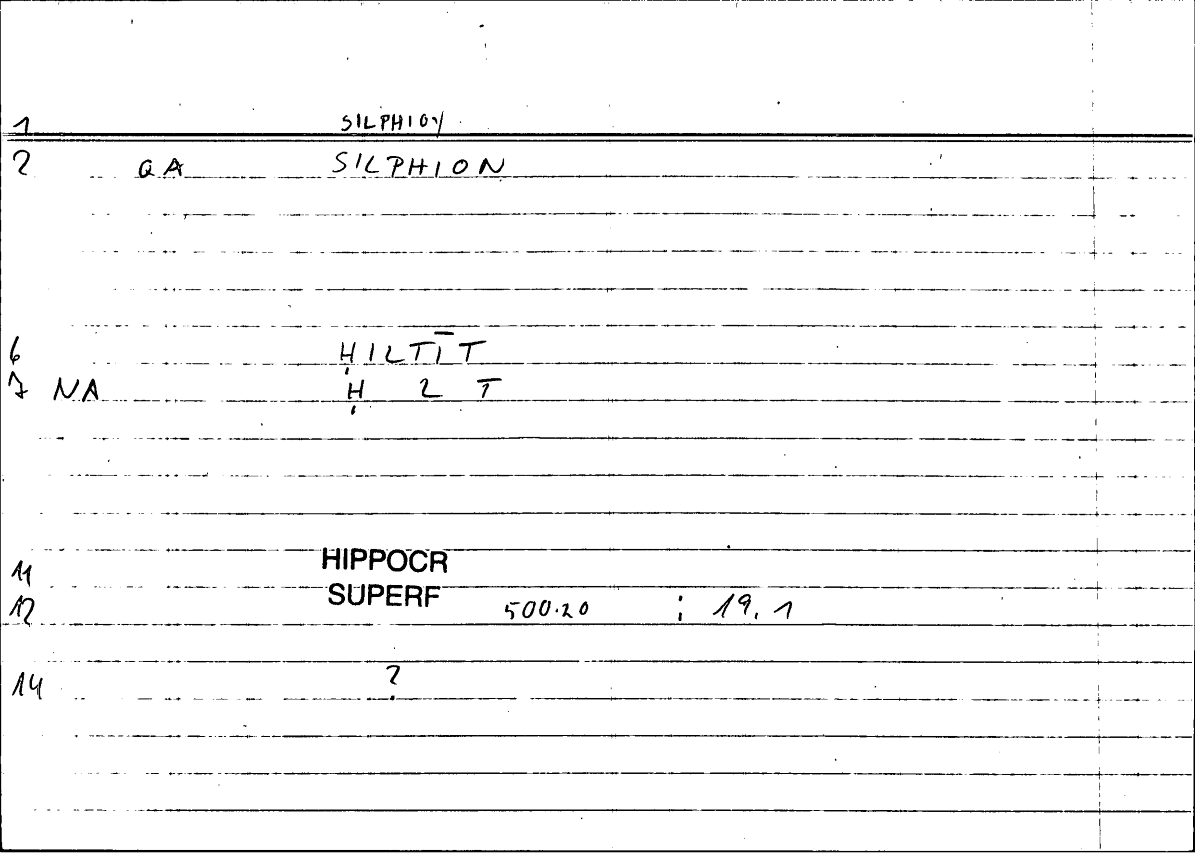 1 SILPHION
2 QA SILPHION
6 ḤILTĪT
7 NA Ḥ L T
11 HIPPOCR
12 SUPERF 500.20 ; 19,1
14 ?